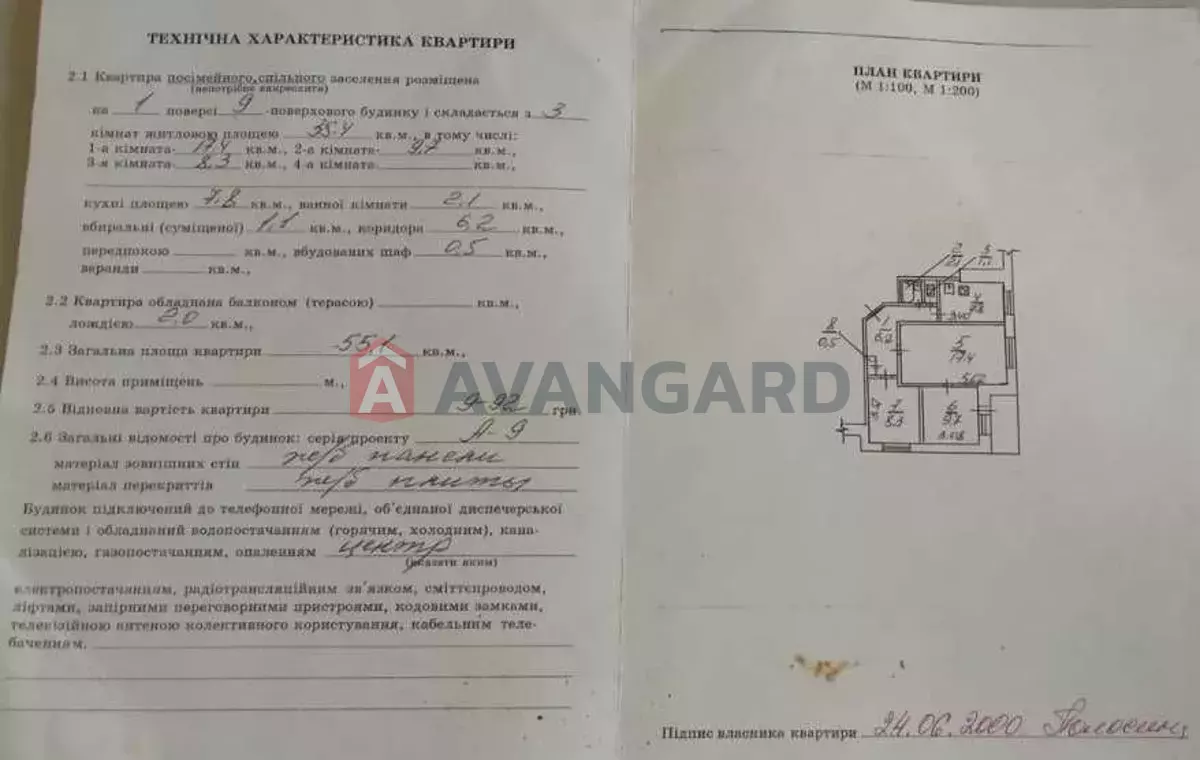 ТЕХНІЧНА ХАРАКТЕРИСТИКА КВАРТИРИ
2.1 Квартира посімейного, спільного заселення розміщена
(непотрібне викреслити)
на 1 поверсі 9 -поверхового будинку і складається з 3
кімнат житловою площею 35.4 кв.м., в тому числі:
1-а кімната- 17.4 кв.м., 2-а кімната- 9.7 кв.м.,
3-я кімната- 8.3 кв.м., 4-а кімната- кв.м.,
кухні площею 7.8 кв.м., ванної кімнати 2.1 кв.м.,
вбиральні (суміщеної) 1.1 кв.м., коридора 6.2 кв.м.,
передпокою кв.м., вбудованих шаф 0.5 кв.м.,
веранди кв.м.,
2.2 Квартира обладнана балконом (терасою) кв.м.,
лоджією 2.0 кв.м.,
2.3 Загальна площа квартири 55.1 кв.м.,
2.4 Висота приміщень м.,
2.5 Відновна вартість квартири 9-92 грн
2.6 Загальні відомості про будинок: серія проекту А-9
матеріал зовнішних стін ж/б панели
матеріал перекриттів ж/б плиты
Будинок підключений до телефонної мережі, об'єднаної диспечерської
системи і обладнаний водопостачанням (горячим, холодним), кана-
лізацією, газопостачанням, опаленням центр
(вказати яким)
електропостачанням, радіотрансляційним зв'язком, сміттєпроводом,
ліфтами, запірними переговорними пристроями, кодовими замками,
телевізійною антеною колективного користування, кабельним теле-
баченням.
AVANGARD
ПЛАН КВАРТИРИ
(М 1:100, М 1:200)
2 2.1
3 1.1
4 7.8
1 6.2
8 0.5
5 17.4
5.62
7 8.3
6 9.7
Підпис власника квартири 24.06.2000